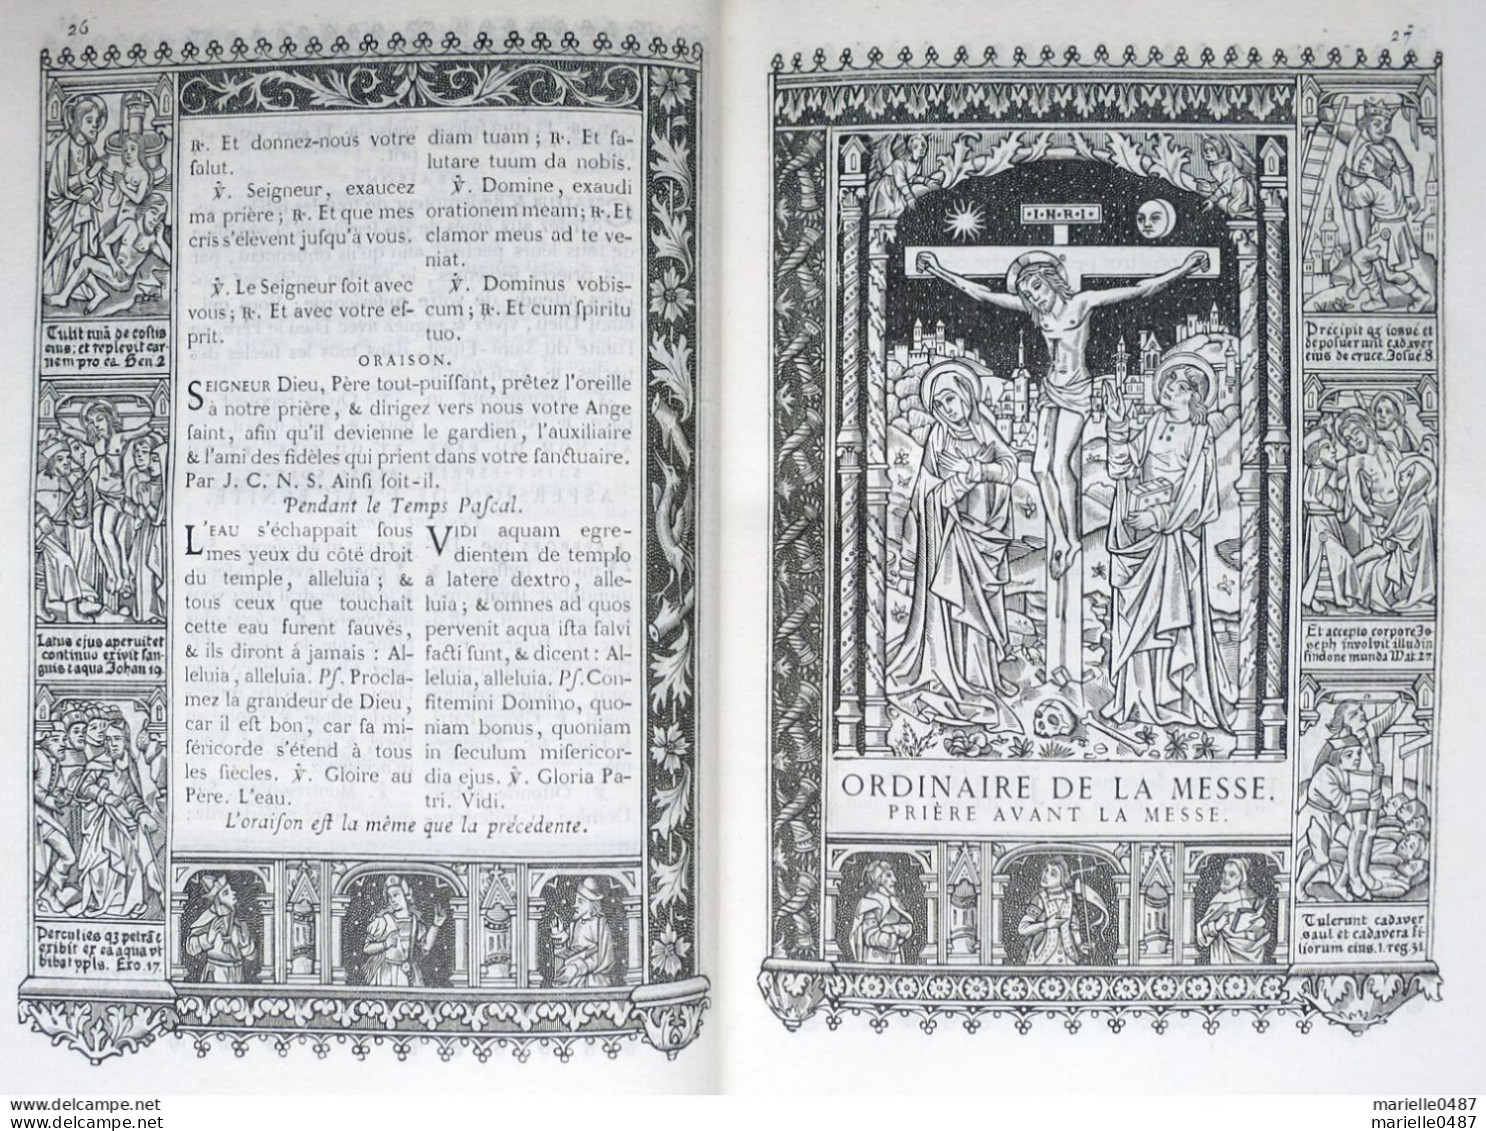 26
Tulit unā de costis
eius: et replevit car-
nem pro ea. Gen 2
Latus ejus aperuit et
continuo exivit san-
guis t aqua Johan 19
Percuties q3 petrā t
exibit ex ea aqua ut
bibat ppls. Exo. 17.
℟. Et donnez-nous votre
ſalut.
℣. Seigneur, exaucez
ma prière; ℟. Et que mes
cris s'élèvent juſqu'à vous.
℣. Le Seigneur ſoit avec
vous; ℟. Et avec votre eſ-
prit.
diam tuam; ℟. Et ſa-
lutare tuum da nobis.
℣. Domine, exaudi
orationem meam; ℟. Et
clamor meus ad te ve-
niat.
℣. Dominus vobis-
cum; ℟. Et cum ſpiritu
tuo.
ORAISON.
SEIGNEUR Dieu, Père tout-puiſſant, prêtez l'oreille
à notre prière, & dirigez vers nous votre Ange
ſaint, afin qu'il devienne le gardien, l'auxiliaire
& l'ami des fidèles qui prient dans votre ſanctuaire.
Par J. C. N. S. Ainſi ſoit-il.
Pendant le Temps Paſcal.
L'EAU s'échappait ſous
mes yeux du côté droit
du temple, alleluia; &
tous ceux que touchait
cette eau furent ſauvés,
& ils diront à jamais : Al-
leluia, alleluia. Pſ. Procla-
mez la grandeur de Dieu,
car il eſt bon, car ſa mi-
ſéricorde s'étend à tous
les ſiècles. ℣. Gloire au
Père. L'eau.
VIDI aquam egre-
dientem de templo
a latere dextro, alle-
luia; & omnes ad quos
pervenit aqua iſta ſalvi
facti ſunt, & dicent : Al-
leluia, alleluia. Pſ. Con-
fitemini Domino, quo-
niam bonus, quoniam
in ſeculum miſericor-
dia ejus. ℣. Gloria Pa-
tri. Vidi.
L'oraiſon eſt la même que la précédente.
27
I·N·R·I
ORDINAIRE DE LA MESSE.
PRIÈRE AVANT LA MESSE.
Précipit q3 iosué et
deposuerunt cadaver
eius de cruce. Josué. 8
Et accepto corpore Jo-
seph involvit illud in
sindone munda Mat. 27.
Tulerunt cadaver
saul et cadavera fi-
liorum eius. 1. reg. 31.
marielle0487
marielle0487
marielle0487
marielle0487